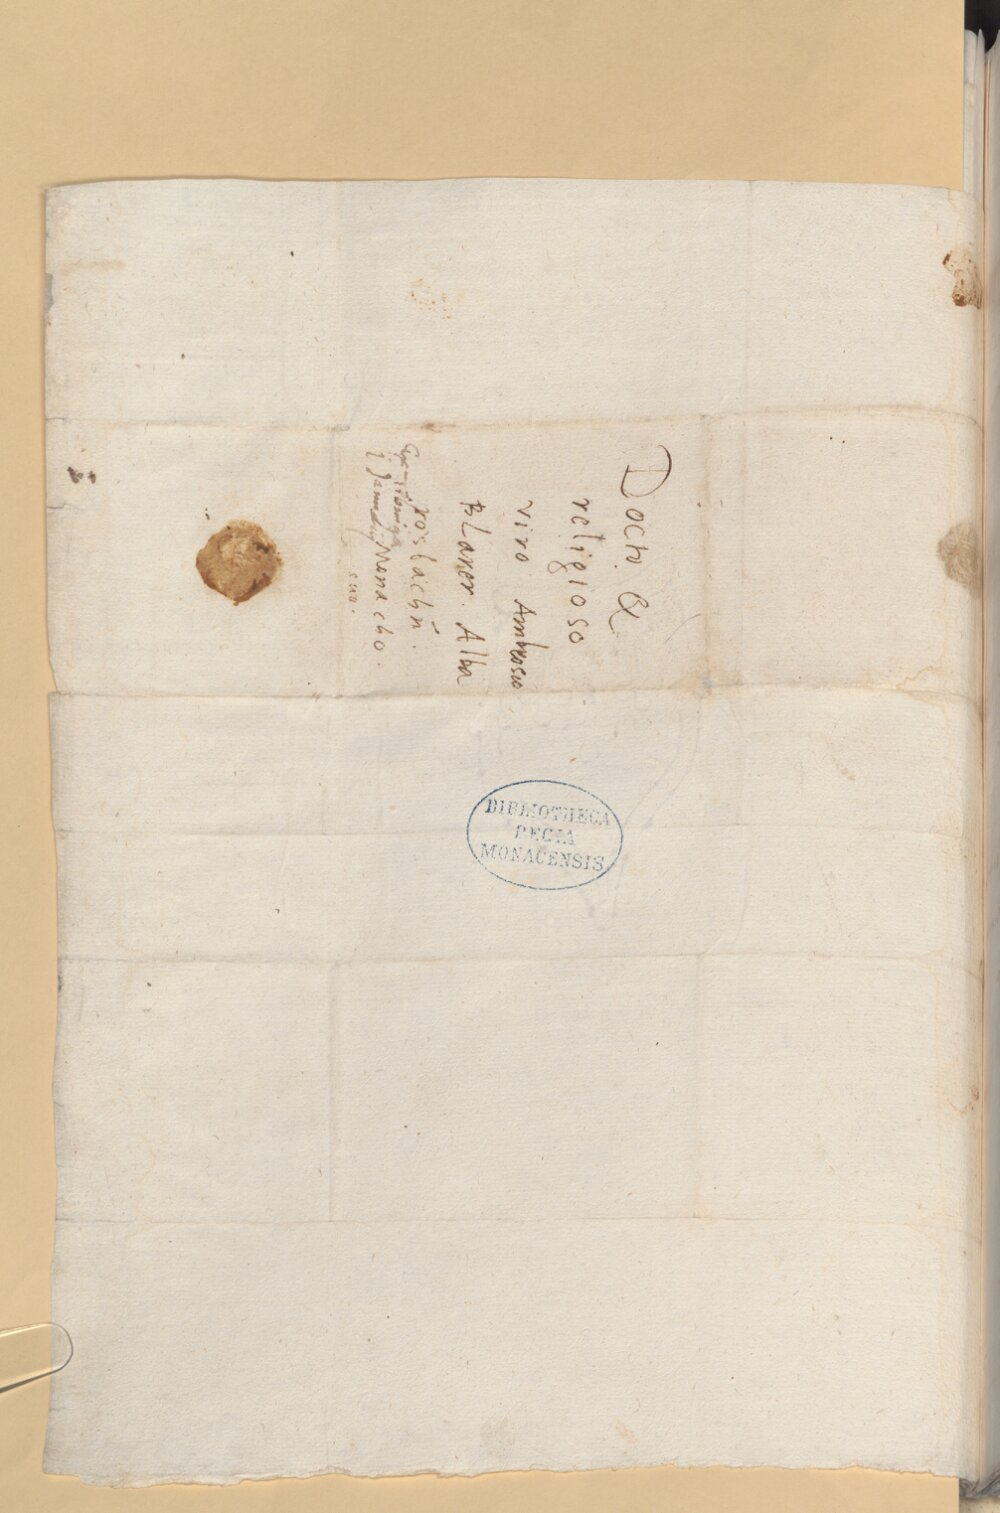 Docto &
religioso
viro Ambrosio
Blarer. Alba
rosbachñ.
Monacho.
suo.
BIBLIOTHECA
REGIA
MONACENSIS